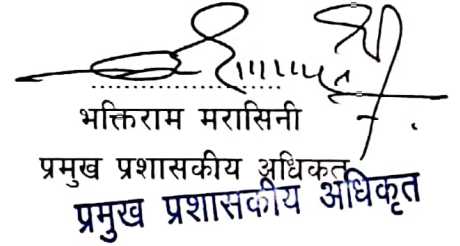 भक्तिराम मरासिनी
प्रमुख प्रशासकीय अधिकृत
प्रमुख प्रशासकीय अधिकृत